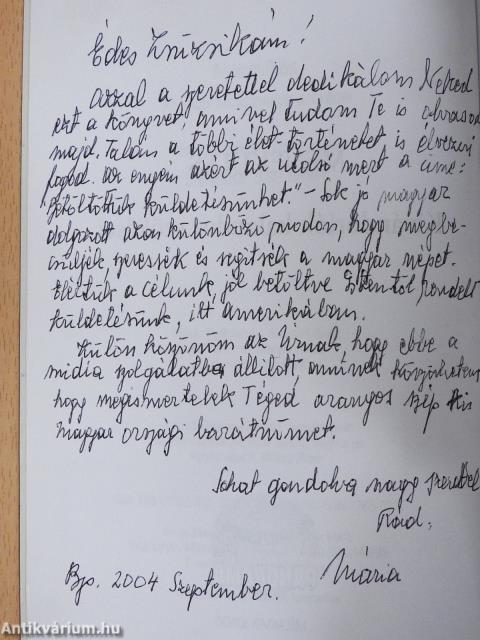 Édes Zsuzsikám!
azzal a szeretettel dedikálom Neked
ezt a könyvet, amivel tudom Te is olvasod
majd. Talán a többi élet-történetet is élvezni
fogod. az enyém azért az utolsó mert a címe:
"Betöltöttük küldetésünket." - Sok jó magyar
dolgozott azon különböző modon, hogy megbe-
csüljék, szeressék és segitsék a magyar népet.
Elértük a célunk, jól betöltve Istentől rendelt
küldetésünk, itt amerikában.
Külön köszönöm az Úrnak, hogy ebbe a
média szolgálatba állitott, aminek köszönhetem
hogy megismertelek Téged, aranyos szép kis
magyar országi barátnőmet.
Sokat gondolva nagy szeretettel
Rád,
Mária
Bp. 2004 Szeptember.
Antikvárium.hu